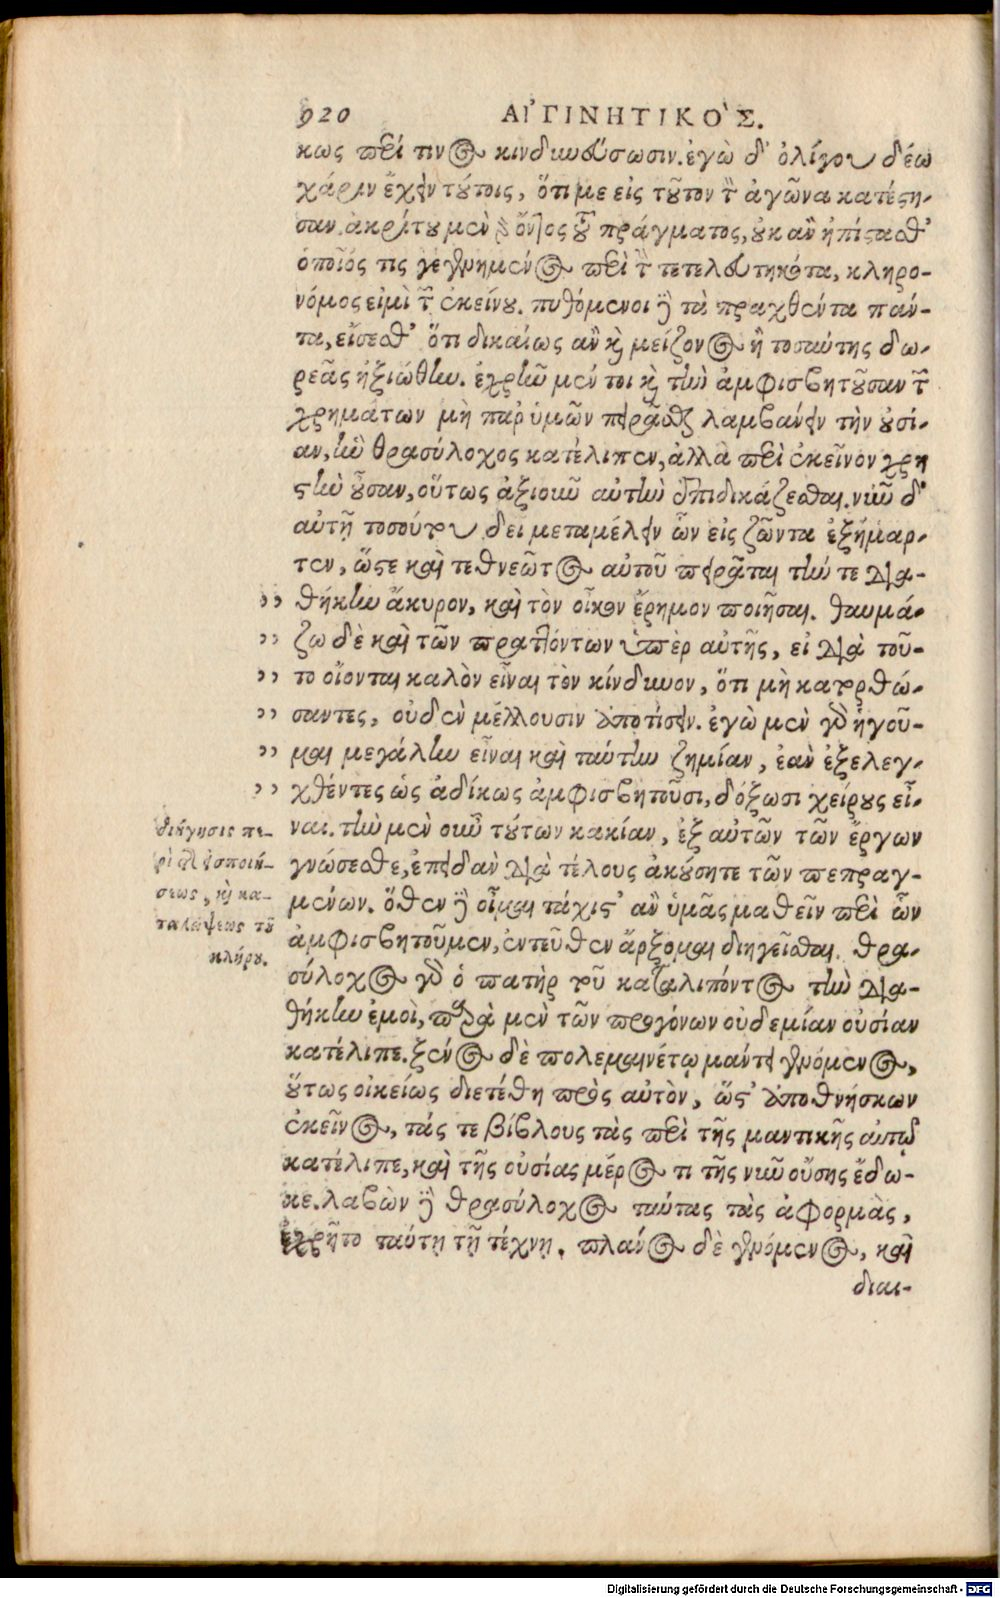 920 ΑἸΓΙΝΗΤΙΚΟ'Σ.
κως περί τινος κινδυνεύσωσιν. ἐγὼ δ' ὀλίγου δέω
χάριν ἔχειν τούτοις, ὅτι με εἰς τοῦτον τὸν ἀγῶνα κατέστη-
σαν. ἀκρίτου μὲν γὰρ ὄντος τοῦ πράγματος, οὐκ ἂν ἠπίστασθ'
ὁποῖός τις γεγενημένος περὶ τὸν τετελευτηκότα, κληρο-
νόμος εἰμὶ τῶν ἐκείνου. πυθόμενοι δὲ τὰ πραχθέντα πάν-
τα, εἴσεσθ' ὅτι δικαίως ἂν καὶ μείζονος ἢ τοσαύτης δω-
ρεᾶς ἠξιώθην. ἐχρῆν μέν τοι καὶ τὴν ἀμφισβητοῦσαν τῶν
χρημάτων μὴ παρ' ὑμῶν πειρᾶσθαι λαμβάνειν τὴν οὐσί-
αν, ἣν θρασύλοχος κατέλιπεν, ἀλλὰ περὶ ἐκεῖνον χρη
στὴν οὖσαν, οὕτως ἀξιοῦν αὐτὴν ἐπιδικάζεσθαι. νῦν δ'
αὐτῇ τοσούτου δεῖ μεταμέλειν ὧν εἰς ζῶντα ἐξήμαρ-
τεν, ὥστε καὶ τεθνεῶτος αὐτοῦ πειρᾶται τήν τε δια-
θήκην ἄκυρον, καὶ τὸν οἶκον ἔρημον ποιῆσαι. θαυμά-
ζω δὲ καὶ τῶν πραττόντων ὑπὲρ αὐτῆς, εἰ διὰ τοῦ-
το οἴονται καλὸν εἶναι τὸν κίνδυνον, ὅτι μὴ κατορθώ-
σαντες, οὐδὲν μέλλουσιν ἀποτίσειν. ἐγὼ μὲν γὰρ ἡγοῦ-
μαι μεγάλην εἶναι καὶ ταύτην ζημίαν, ἐὰν ἐξελεγ-
χθέντες ὡς ἀδίκως ἀμφισβητοῦσι, δόξωσι χείρους εἶ-
ναι. τὴν μὲν οὖν τούτων κακίαν, ἐξ αὐτῶν τῶν ἔργων
γνώσεσθε, ἐπειδὰν διὰ τέλους ἀκούσητε τῶν πεπραγ-
μένων. ὅθεν δὲ οἶμαι τάχιστ' ἂν ὑμᾶς μαθεῖν περὶ ὧν
ἀμφισβητοῦμεν, ἐντεῦθεν ἄρξομαι διηγεῖσθαι. θρα-
σύλοχος γὰρ ὁ πατὴρ τοῦ καταλιπόντος τὴν δια-
θήκην ἐμοὶ, παρὰ μὲν τῶν προγόνων οὐδεμίαν οὐσίαν
κατέλιπε. ξένος δὲ πολεμαινέτῳ μάντει γενόμενος,
οὕτως οἰκείως διετέθη πρὸς αὐτὸν, ὥστ' ἀποθνήσκων
ἐκεῖνος, τάς τε βίβλους τὰς περὶ τῆς μαντικῆς αὐτῷ
κατέλιπε, καὶ τῆς οὐσίας μέρος τι τῆς νῦν οὔσης ἔδω-
κε. λαβὼν δὲ θρασύλοχος ταύτας τὰς ἀφορμὰς,
ἐχρῆτο ταύτῃ τῇ τέχνῃ. πλάνος δὲ γενόμενος, καὶ
διαι-
διήγησις πε-
ρὶ τῆς εἰσποιή-
σεως, καὶ κα-
ταλείψεως τοῦ
κλήρου.
Digitalisierung gefördert durch die Deutsche Forschungsgemeinschaft - DFG